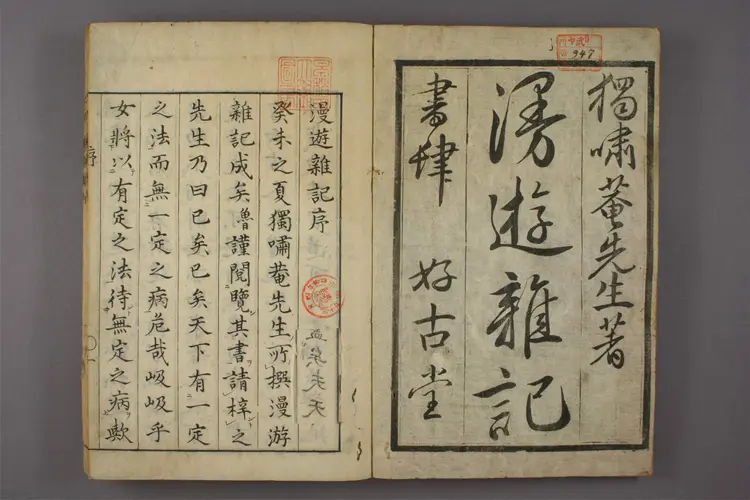 947
獨嘯菴先生著
漫遊雜記
書肆 好古堂
漫遊雜記序
癸未之夏獨嘯菴先生所撰漫游
雜記成矣魯謹閱覽其書請梓之
先生乃曰已矣已矣天下有一定
之法而無一定之病危哉岋岋乎
女將以有定之法待無定之病歟
序